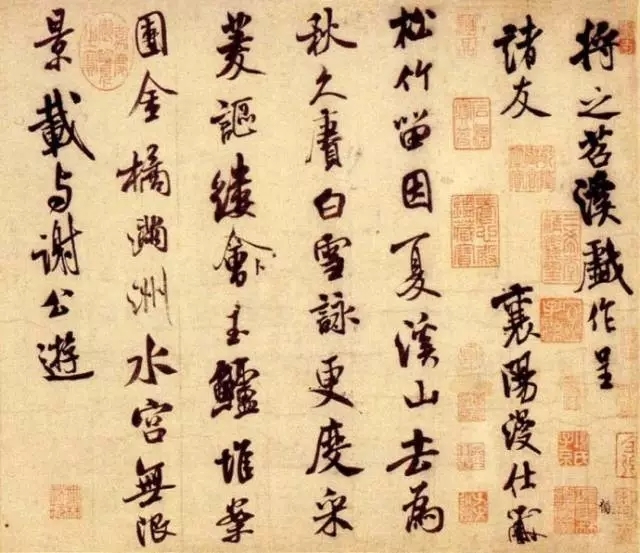 将之苕溪戲作呈
諸友
襄陽漫仕黻
松竹留因夏溪山去為
秋久賡白雪詠更度采
菱謳縷會卜玉鱸堆案
團金橘滿洲水宮無限
景載与謝公遊